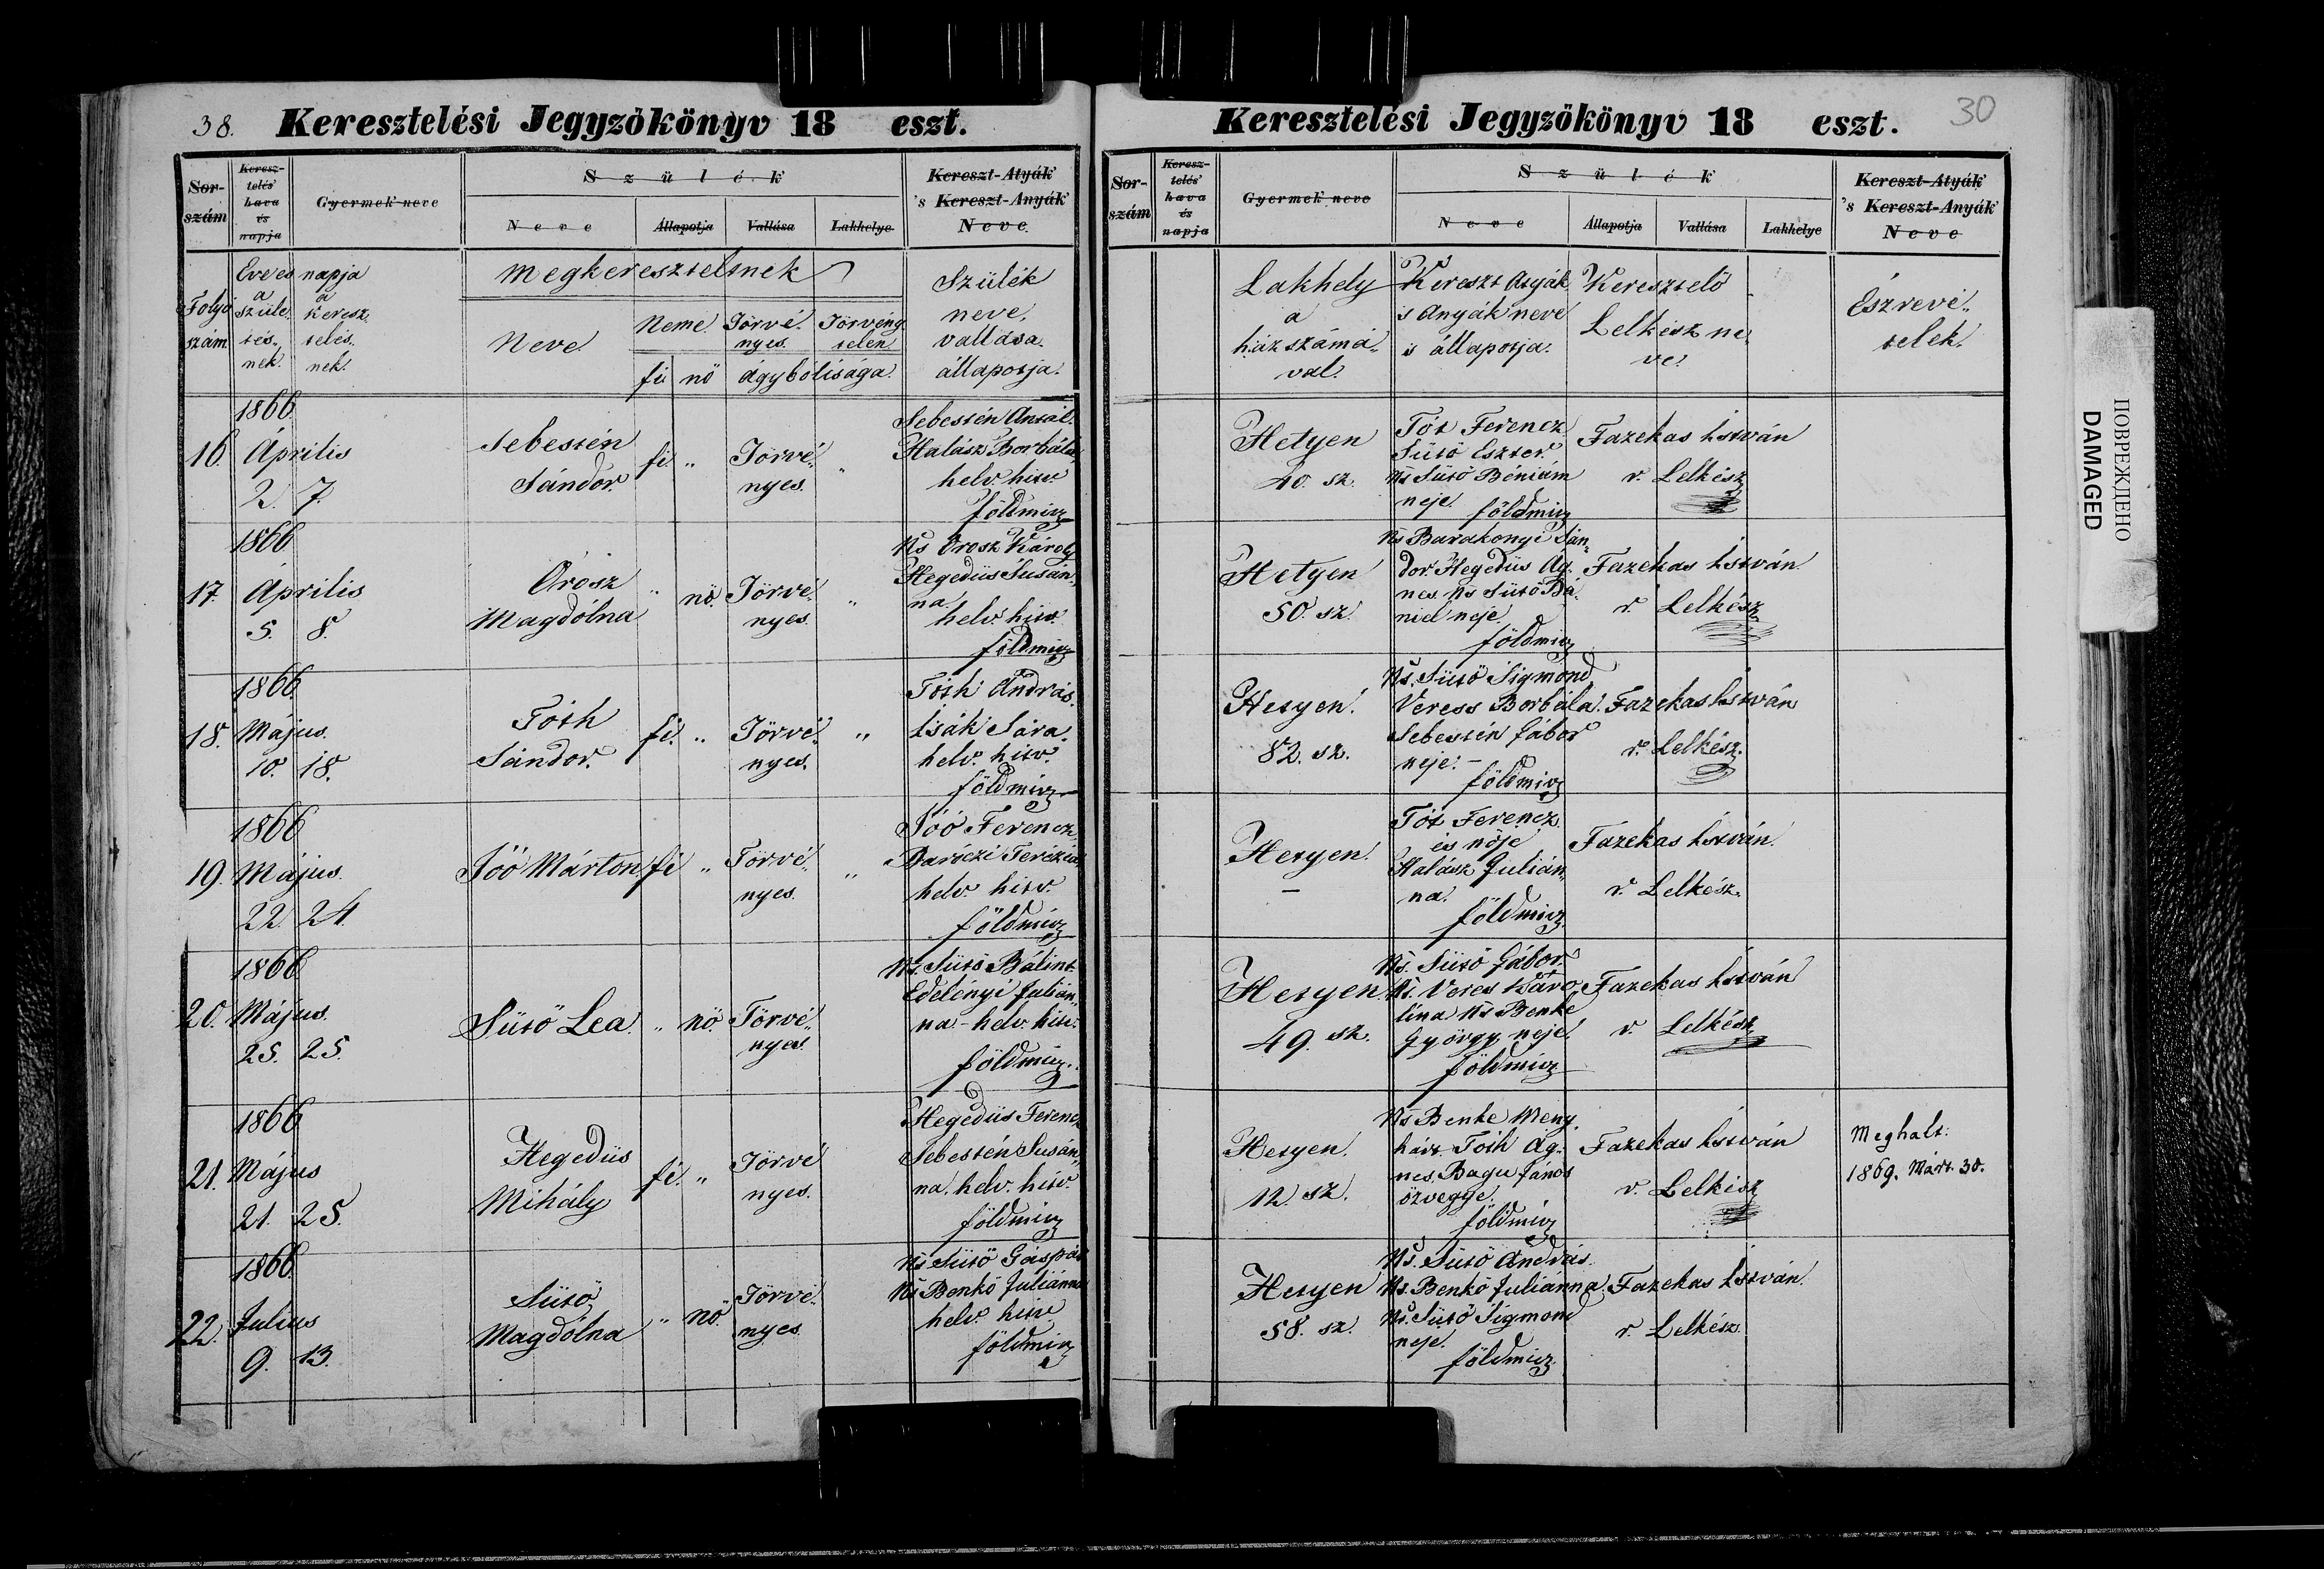 38. Keresztelési Jegyzökönyv 18 eszt.
Sor-
szám
Keresz-
telés
hava
és
napja
Gyermek neve
Szülék
Neve
Állapotja
Vallása
Lakhelye
Kereszt-Atyák
's Kereszt-Anyák
Neve.
Folyó
szám
Eve es napja
a a
szüle- keresz-
tés- telés-
nek. nek.
Megkereszteltnek
Neve.
Neme.
fi nö
Törvé-
nyes.
Törvény-
telen
ágybólisága.
Szülék
neve,
vallása.
állapotja.
1866.
16. Április
2. 7.
Sebestén
Sándor.
fi. „
Törvé-
nyes.
„
Sebestén Antal.
Halász Borbála
helv. hitv.
földmivz
1866
17. Április
5. 8.
Orosz
Magdólna
„ nö.
Törvé-
nyes.
„
Ns Orosz Károly
Hegedüs Susán-
na.
helv. hitv.
földmivz
1866.
18. Május.
10. 18.
Tóth
Sándor.
fi. „
Törvé-
nyes.
„
Tóth András.
Isák Sára.
helv. hitv.
földmivz
1866
19. Május.
22. 24.
Soó Márton.
fi „
Törvé-
nyes.
„
Soó Ferencz
Baróczi Terézia
helv. hitv.
földmivz
1866
20. Május.
25. 25.
Sütö Lea.
„ nö.
Törvé-
nyes.
Ns. Sütö Bálint.
Edelényi Julián-
na - helv. hitv.
földmivz.
1866
21. Május
21. 25.
Hegedüs
Mihály
fi. „
Törvé
nyes.
Hegedüs Ferencz
Sebestén Susán-
na. helv. hitv.
földmivz
1866.
22. Julius
9. 13.
Sütö
Magdólna
„ nö.
Törvé-
nyes.
Ns Sütö Gáspár
Ns Benkö Juliánna
helv. hitv.
földmivz
Keresztelési Jegyzökönyv 18 eszt. 30
Sor-
szám
Keresz-
telés
hava
és
napja
Gyermek neve
Szülék
Neve
Állapotja
Vallása
Lakhelye
Kereszt-Atyák
's Kereszt-Anyák
Neve
Lakhely
a
ház számá-
val.
Kereszt Atyák
s Anyák neve
is állapotja.
Keresztelö
Lelkész ne-
ve.
Észrevé-
telek.
Hetyen
40. sz.
Tót Ferencz
Sütö Eszter.
Ns Sütö Béniám
neje. földmivz
Fazekas István
r. Lelkész
Hetyen
50. sz.
Ns Barakonyi Sán-
dor. Hegedüs Ág-
nes. Ns Sütö Dá-
niel neje.
földmivz
Fazekas István.
r. Lelkész
Hetyen.
82. sz.
Ns. Sütö Sigmond
Veress Borbála.
Sebestén Gábor
neje. -
földmivz
Fazekas István
r. Lelkész.
Hetyen.
-
Tót Ferencz.
és nöje
Halász Julián-
na.
földmivz
Fazekas István.
r. Lelkész.
Hetyen.
49. sz.
Ns. Sütö Gábor.
Ns. Veres Káro-
lina Ns Benke
György neje.
földmivz
Fazekas István
r. Lelkész
Hetyen.
12. sz.
Ns Benke Meny-
hárt Tóth Ág-
nes. Bagu János
özvegye.
földmivz
Fazekas István
r. Lelkész
Meghalt:
1869. Márt. 30.
Hetyen
58. sz.
Ns. Sütö András.
Ns. Benkö Juliánna.
Ns. Sütö Sigmond
neje.
földmivz.
Fazekas István.
r. Lelkész.
ПОВРЕЖДЕНО
DAMAGED